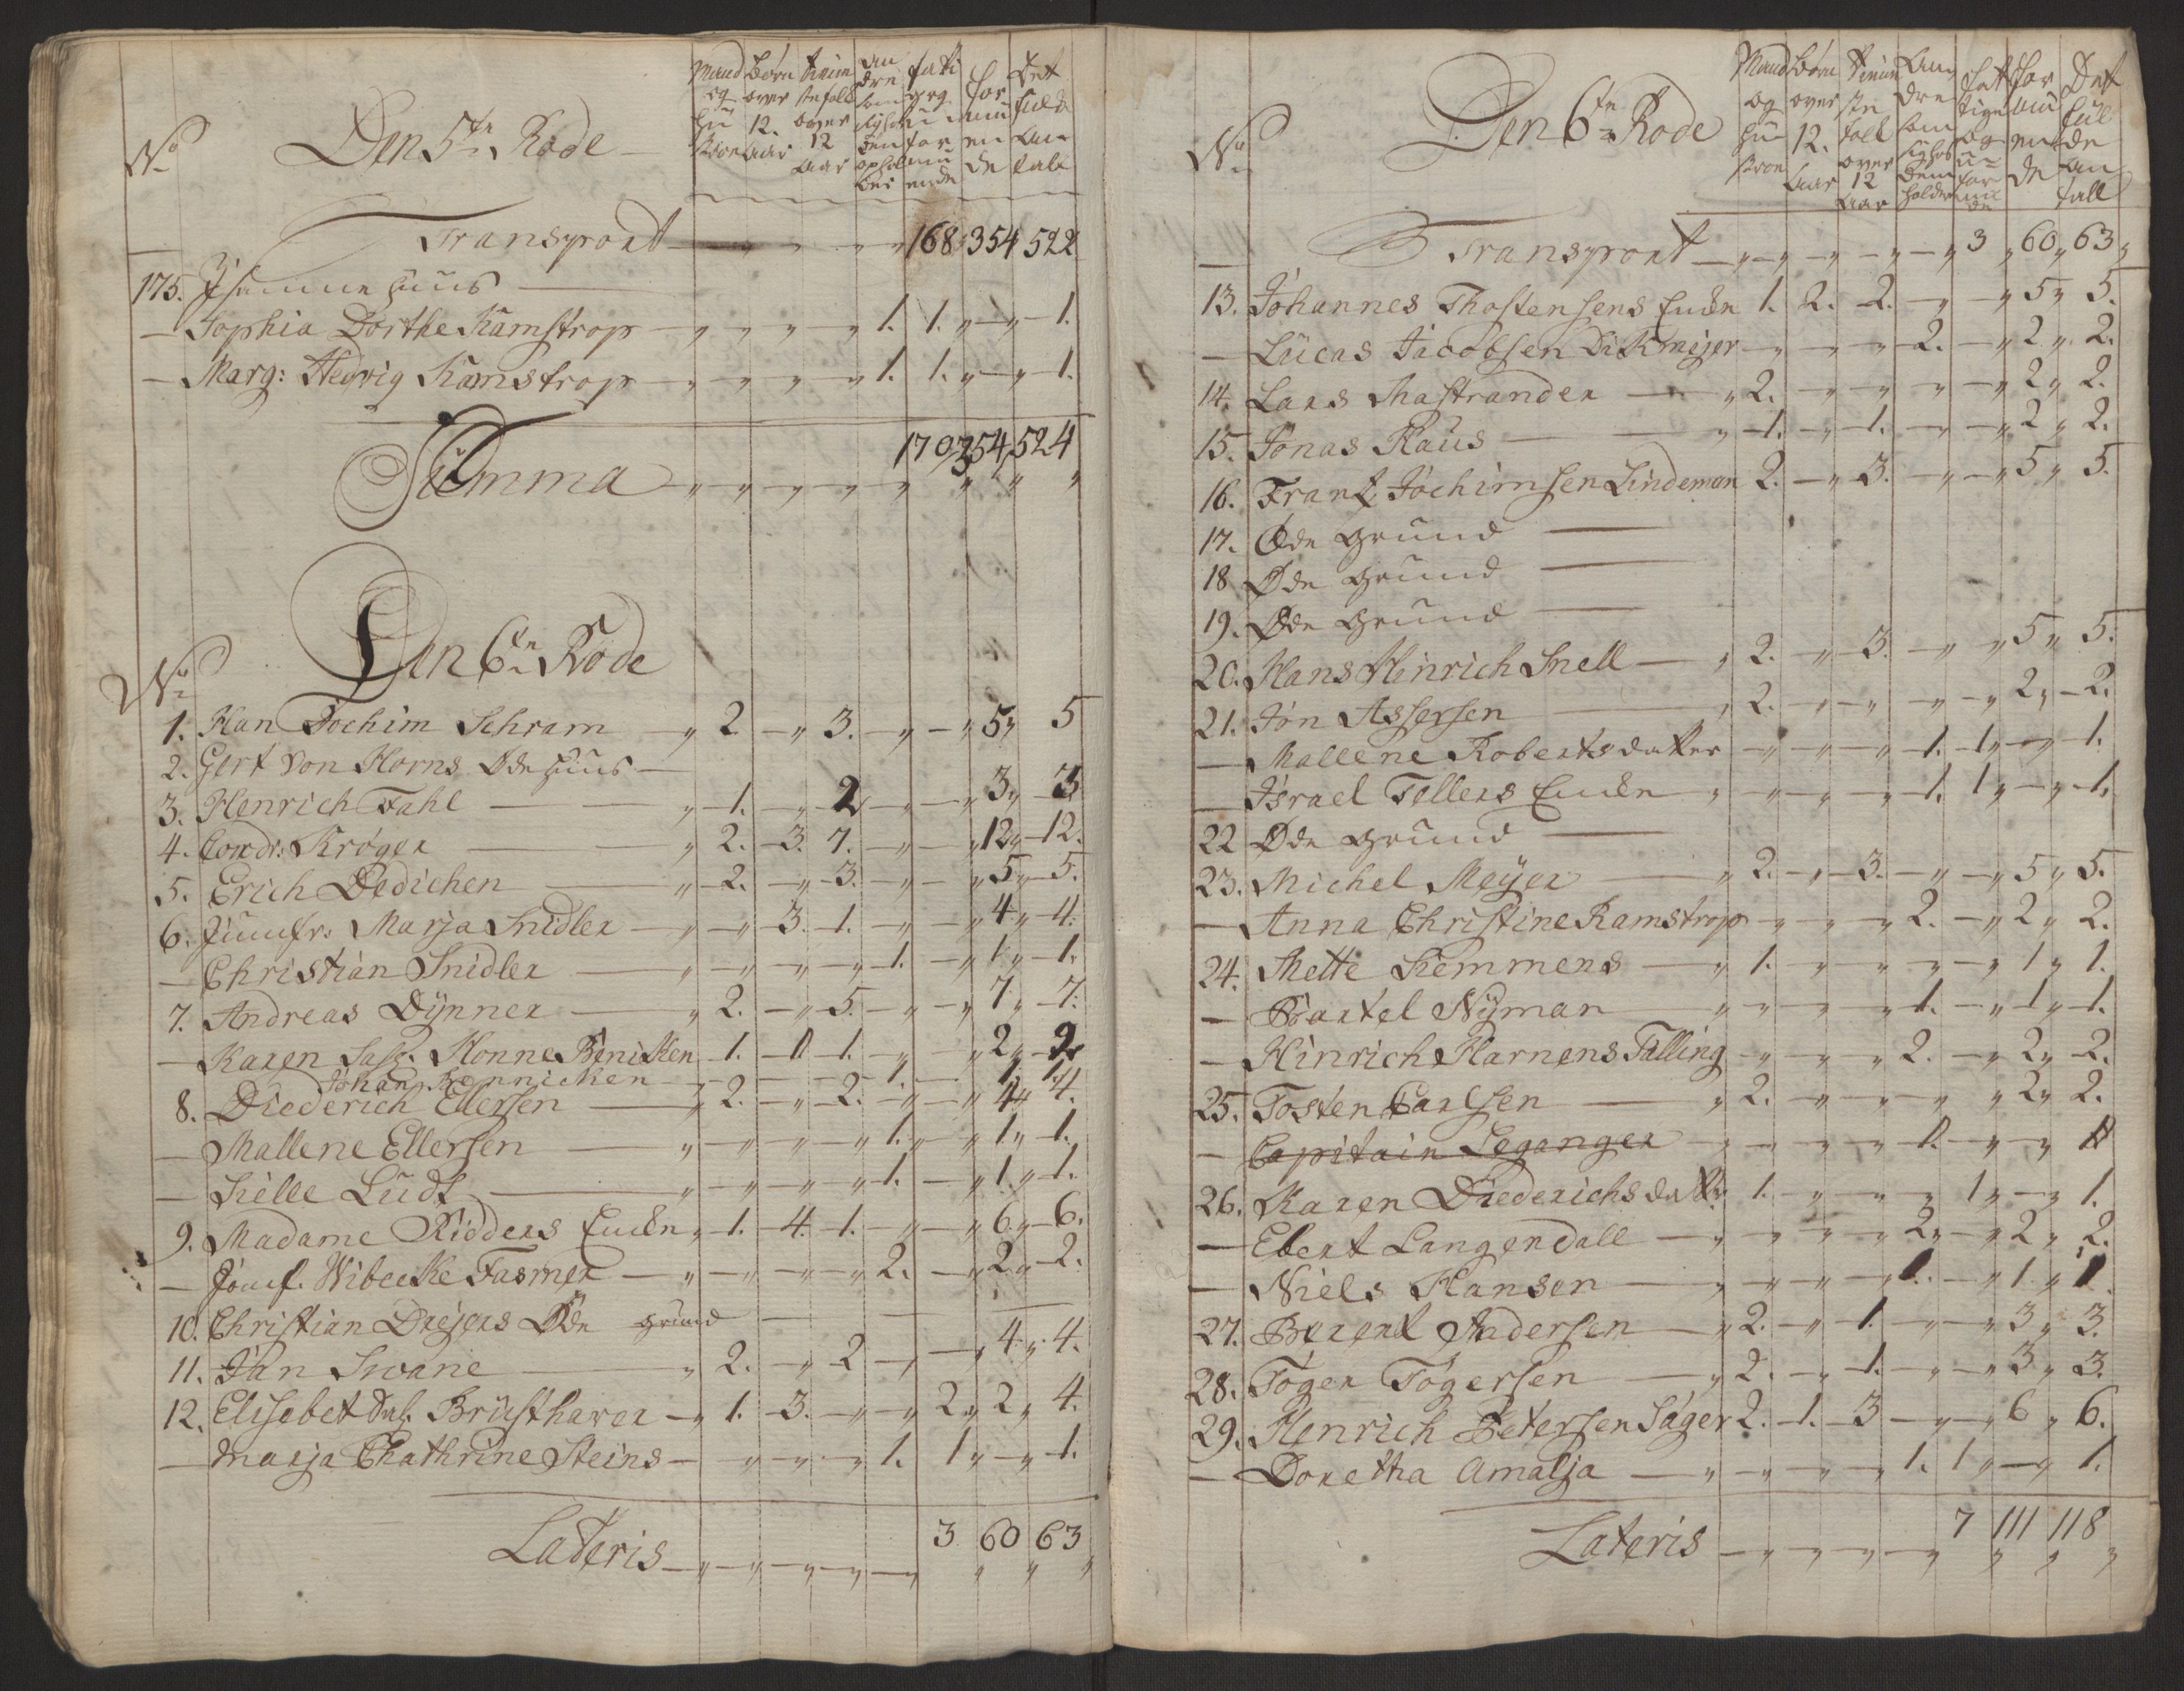 No Den 5te Rode
Mand og Hustroe
Børn over 12. aar
over 12 aar
Transport 168 354 522
175. I samme huus
— Sophia Dorthe Kamstrop 1. 1. 1.
— Marg: Hedvig Kamstrop 1. 1. 1.
Summa 170 354 524
No Den 6te Rode
1. Han Jochim Schram 2. 3. 5 5
2. Gert von Horns Øde huus
3. Henrich Fahl 1. 2 3 3
4. Condr: Krøger 2. 3. 7. 12 12.
5. Erich Dedichen 2. 3. 5 5.
6. Jumfr: Marja Snidler 3. 1. 4 4.
— Christian Snidler 1. 1 1.
7. Andreas Dynner 2. 5. 7 7.
— Karen Sal. Honne Beniken 1. 1. 2 2
Johan Kennicken 1. 1. 1.
8. Diederich Ellersen 2. 2. 4 4.
— Mallene Ellersen 1. 1 1.
— Sielle Ludt 1. 1 1.
9. Madame Ridders Encke 1. 4. 1. 6 6.
— Jomf. Wibecke Fasmer 2. 2 2.
10. Christian Drejers Øde grund
11. Jan Swane 2. 2 4 4.
12. Elisebet Sal. Brusthaver 1. 3. 2 2 4.
— Marja Chathrine Steins 1. 1 1.
Lateris 3 60 63
No Den 6te Rode
Mand og Hustroe
Børn over 12. aar
over 12 aar
Transport 3 60 63
13. Johannes Thostensens Encke 1. 2. 2. 5 5.
— Lucas Jacobsen Dikmejer 2. 2 2.
14. Lars Mastrander 2. 2 2.
15. Jonas Raus 1. 1. 2 2.
16. Frantz Jochimsen Lindeman 2. 3. 5 5.
17. Øde grund
18 Øde grund
19. Øde grund
20. Hans Hinrich Snell 2. 3. 5 5.
21. Jon Assersen 2. 2 2.
— Mallene Robertsdatter 1. 1 1.
— Israel Tellers Encke 1. 1 1.
22 Øde grund
23. Michel Meyer 2. 3. 5 5.
— Anna Christine Ramstrop 2. 2 2.
24. Mette Siemmens 1. 1 1.
— Bartel Nyman 1. 1 1.
— Hinrich Harnens Talling 2. 2 2.
25. Tosten Carlsen 2. 2 2.
— Capitain Leganger
26. Karen Diederichsdatter 1. 1 1.
— Ebert Langendall 2. 2 2.
— Niels Hansen 1. 1 1
27. Berent Andersen 2. 1. 3 3.
28. Toger Togersen 2. 1. 3 3.
29. Henrich Petersen Søger 2. 1. 3 6 6.
— Doretha Amalja 1. 1 1.
Lateris 7 111 118